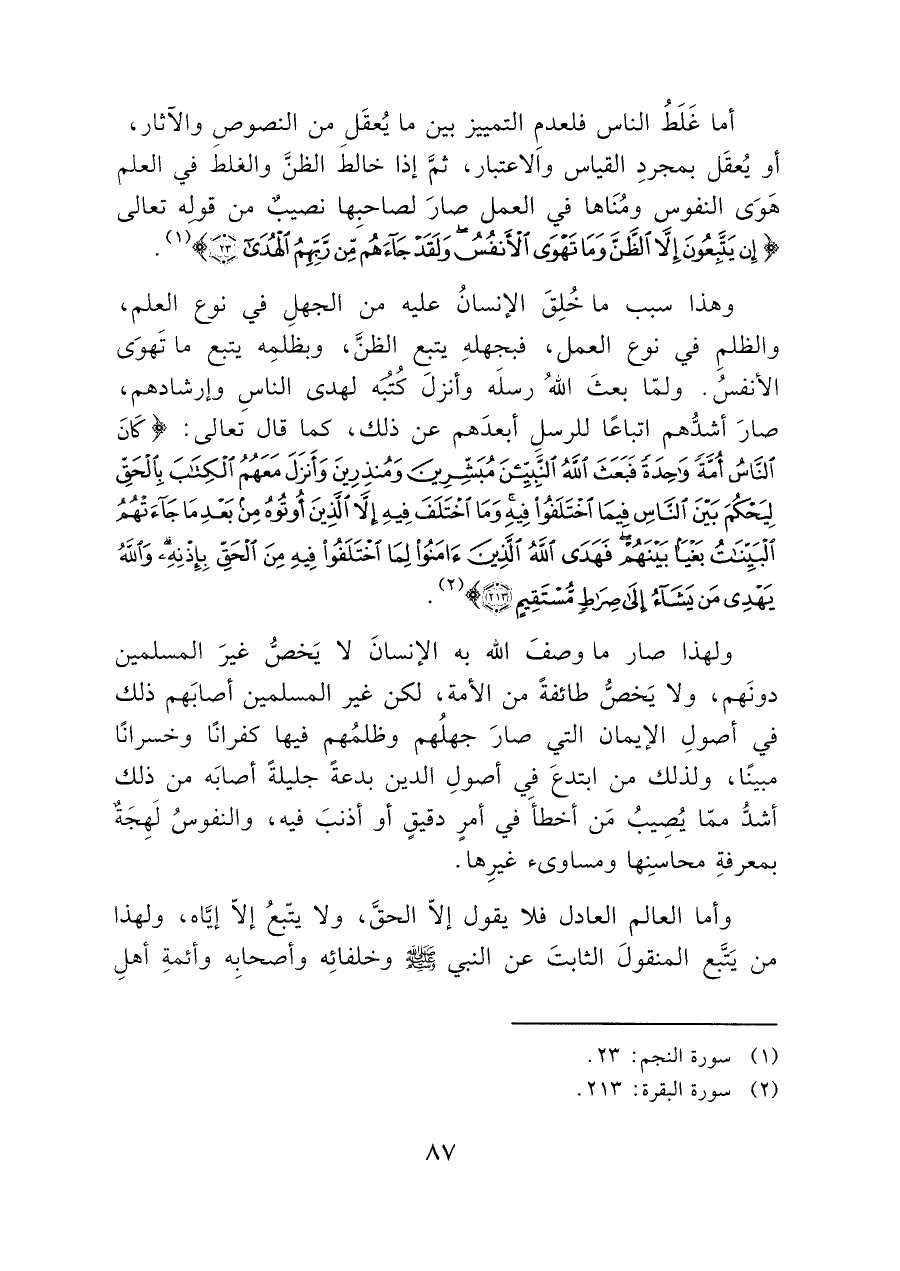 أما غَلَطُ الناس فلعدمِ التمييز بين ما يُعقَل من النصوصِ والآثار،
أو يُعقَل بمجردِ القياس والاعتبار، ثمَّ إذا خالطَ الظنَّ والغلطَ في العلم
هَوَى النفوس ومُنَاها في العمل صارَ لصاحبِها نصيبٌ من قولِه تعالى
﴿إِن يَتَّبِعُونَ إِلَّا ٱلظَّنَّ وَمَا تَهْوَى ٱلْأَنفُسُ ۖ وَلَقَدْ جَآءَهُم مِّن رَّبِّهِمُ ٱلْهُدَىٰٓ ۝٢٣﴾(١).
وهذا سبب ما خُلِقَ الإنسانُ عليه من الجهلِ في نوع العلم،
والظلمِ في نوع العمل، فبجهلهِ يتبع الظنَّ، وبظلمِه يتبع ما تَهوَى
الأنفسُ. ولمّا بعثَ اللهُ رسلَه وأنزلَ كُتُبَه لهدى الناسِ وإرشادهم،
صارَ أشدُّهم اتباعًا للرسلِ أبعدَهم عن ذلك، كما قال تعالى: ﴿كَانَ
ٱلنَّاسُ أُمَّةً وَٰحِدَةً فَبَعَثَ ٱللَّهُ ٱلنَّبِيِّـۧنَ مُبَشِّرِينَ وَمُنذِرِينَ وَأَنزَلَ مَعَهُمُ ٱلْكِتَٰبَ بِٱلْحَقِّ
لِيَحْكُمَ بَيْنَ ٱلنَّاسِ فِيمَا ٱخْتَلَفُوا۟ فِيهِ ۚ وَمَا ٱخْتَلَفَ فِيهِ إِلَّا ٱلَّذِينَ أُوتُوهُ مِنۢ بَعْدِ مَا جَآءَتْهُمُ
ٱلْبَيِّنَٰتُ بَغْيًۢا بَيْنَهُمْ ۖ فَهَدَى ٱللَّهُ ٱلَّذِينَ ءَامَنُوا۟ لِمَا ٱخْتَلَفُوا۟ فِيهِ مِنَ ٱلْحَقِّ بِإِذْنِهِۦ ۗ وَٱللَّهُ
يَهْدِى مَن يَشَآءُ إِلَىٰ صِرَٰطٍ مُّسْتَقِيمٍ ۝٢١٣﴾(٢).
ولهذا صار ما وصفَ الله به الإنسانَ لا يَخصُّ غيرَ المسلمين
دونَهم، ولا يَخصُّ طائفةً من الأمة، لكن غير المسلمين أصابَهم ذلك
في أصولِ الإيمان التي صارَ جهلُهم وظلمُهم فيها كفرانًا وخسرانًا
مبينًا، ولذلك من ابتدعَ في أصولِ الدين بدعةً جليلةً أصابَه من ذلك
أشدُّ ممّا يُصِيبُ مَن أخطأَ في أمرٍ دقيقٍ أو أذنبَ فيه، والنفوسُ لَهِجَةٌ
بمعرفةِ محاسنِها ومساوىء غيرِها.
وأما العالم العادل فلا يقول إلاّ الحقَّ، ولا يتّبعُ إلاّ إيَّاه، ولهذا
من يَتَّبع المنقولَ الثابتَ عن النبي ﷺ وخلفائِه وأصحابِه وأئمةِ أهلِ
(١) سورة النجم: ٢٣.
(٢) سورة البقرة: ٢١٣.
٨٧